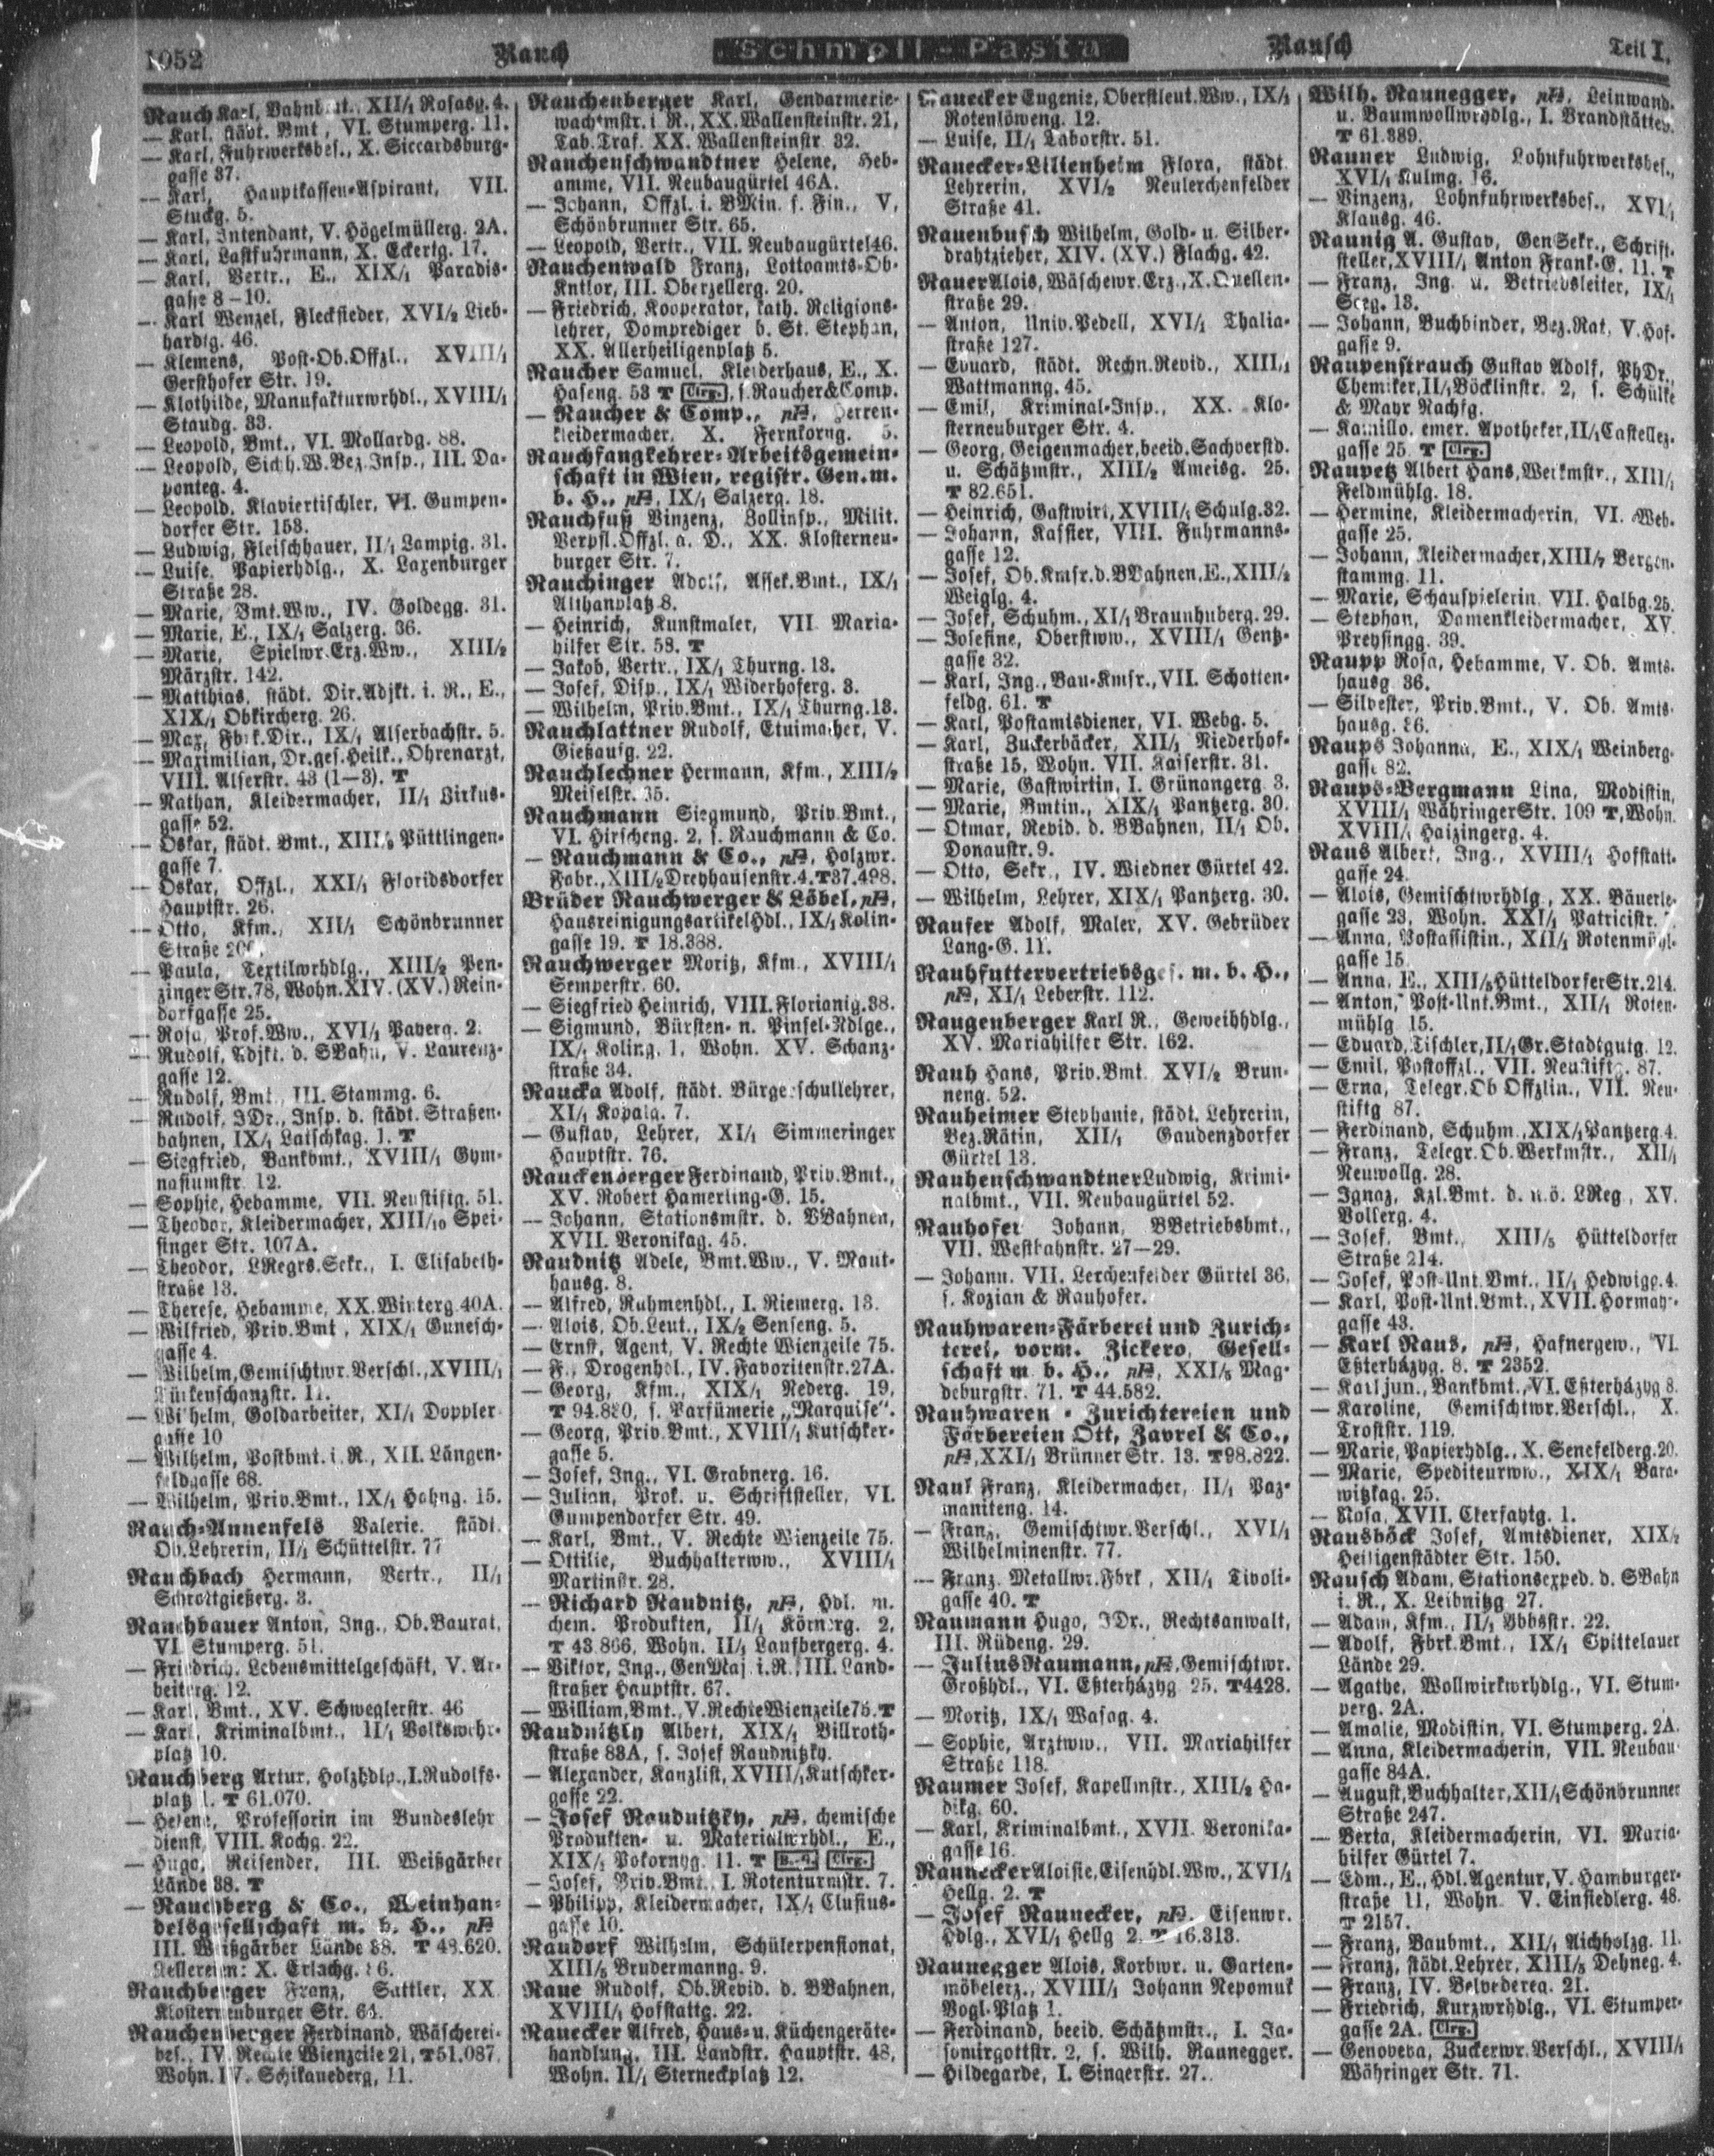 1952
Rauch
Schmoll-Pasta
Rausch
Teil I.
Rauch Karl, XII/1 Rosasg. 4.
— Karl, städt. Bmt., VI. Stumperg. 11.
— Karl, Fuhrwerksbes., X. Siccardsburg-
gasse 37.
— Karl, Hauptkassen-Aspirant, VII.
Stuckg. 5.
— Karl, Intendant, V. Högelmüllerg. 2A.
— Karl, Lastfuhrmann, X. Eckertg. 17.
— Karl, Vertr., E., XIX/1 Paradis-
gasse 8–10.
— Karl Wenzel, Flecksieder, XVI/2 Lieb-
hardtg. 46.
— Klemens, Post-Ob.Offzl., XVIII/1
Gersthofer Str. 19.
— Klothilde, Manufakturwrhdl., XVIII/1
Staudg. 33.
— Leopold, Bmt., VI. Mollardg. 88.
— Leopold, Sichh.W.Bez.Insp., III. Da-
ponteg. 4.
— Leopold, Klaviertischler, VI. Gumpen-
dorfer Str. 153.
— Ludwig, Fleischhauer, II/1 Lampig. 31.
— Luise, Papierhdlg., X. Laxenburger
Straße 28.
— Marie, Bmt.Ww., IV. Goldegg. 31.
— Marie, E., IX/1 Salzerg. 36.
— Marie, Spielwr.Erz.Ww., XIII/2
Märzstr. 142.
— Matthias, städt. Dir.Adjkt. i. R., E.,
XIX/1 Obkircherg. 26.
— Max, Fbrk.Dir., IX/1 Alserbachstr. 5.
— Maximilian, Dr.ges.Heilk., Ohrenarzt,
VIII. Alserstr. 43 (1—3). T
— Nathan, Kleidermacher, II/1 Zirkus-
gasse 52.
— Oskar, städt. Bmt., XIII/9 Püttlingen-
gasse 7.
— Oskar, Offzl., XXI/1 Floridsdorfer
Hauptstr. 26.
— Otto, Kfm., XII/1 Schönbrunner
Straße
— Paula, Textilwrhdlg., XIII/2 Pen-
zinger Str. 78, Wohn. XIV. (XV.) Rein-
dorfgasse 25.
— Rosa, Prof.Ww., XVI/1 Payerg. 2.
— Rudolf, Adjkt. d. SBahn, V. Laurenz-
gasse 12.
— Rudolf, Bmt., III. Stammg. 6.
— Rudolf, JDr., Insp. d. städt. Straßen-
bahnen, IX/1 Latschkag. 1. T
— Siegfried, Bankbmt., XVIII/1 Gym-
nasiumstr. 12.
— Sophie, Hebamme, VII. Neustiftg. 51.
— Theodor, Kleidermacher, XIII/10 Spei-
singer Str. 107A.
— Theodor, LRegrs.Sekr., I. Elisabeth-
straße 13.
— Therese, Hebamme, XX. Winterg. 40A.
— Wilfried, Priv.Bmt., XIX/1 Gunesch-
gasse 4.
— Wilhelm, Gemischtwr.Verschl., XVIII/1
Türkenschanzstr. 11.
— Wilhelm, Goldarbeiter, XI/1 Doppler-
gasse 10
— Wilhelm, Postbmt. i. R., XII. Längen-
feldgasse 68.
— Wilhelm, Priv.Bmt., IX/1 Hahng. 15.
Rauch-Annenfels Valerie, städt.
Ob.Lehrerin, II/1 Schüttelstr. 77
Rauchbach Hermann, Vertr., II/1
Schrottgießerg. 3.
Rauchbauer Anton, Ing., Ob.Baurat,
VI. Stumperg. 51.
— Friedrich, Lebensmittelgeschäft, V. Ar-
beiterg. 12.
— Karl, Bmt., XV. Schweglerstr. 46
— Karl, Kriminalbmt., II/1 Volkswehr-
platz 10.
Rauchberg Artur, Holzhdlg., I. Rudolfs-
platz 1. T 61.070.
— Helene, Professorin im Bundeslehr
dienst, VIII. Kochg. 22.
— Hugo, Reisender, III. Weißgärber
Lände 38. T
— Rauchberg & Co., Weinhan-
delsgesellschaft m. b. H., pF
III. Weißgärber Lände 38. T 48.620.
Kellereien: X. Erlachg.
Rauchberger Franz, Sattler, XX
Klosterneuburger Str. 64.
Rauchenberger Ferdinand, Wäscherei-
bes., IV. Rechte Wienzeile 21, T 51.087,
Wohn. IV. Schikanederg. 11.
Rauchenberger Karl, Gendarmerie-
wachtmstr. i. R., XX. Wallensteinstr. 21,
Tab.Traf. XX. Wallensteinstr. 32.
Rauchenschwandtner Helene, Heb-
amme, VII. Neubaugürtel 46A.
— Johann, Offzl. i. BMin. f. Fin., V,
Schönbrunner Str. 65.
— Leopold, Vertr., VII. Neubaugürtel 46.
Rauchenwald Franz, Lottoamts-Ob-
Kntlor, III. Oberzellerg. 20.
— Friedrich, Kooperator, kath. Religions-
lehrer, Domprediger b. St. Stephan,
XX. Allerheiligenplatz 5.
Raucher Samuel, Kleiderhaus, E., X.
Haseng. 53 T Clrg., s. Raucher & Comp.
— Raucher & Comp., pF, Herren-
kleidermacher, X. Fernkorng. 5.
Rauchfangkehrer-Arbeitsgemein-
schaft in Wien, registr. Gen. m.
b. H., pF, IX/1 Salzerg. 18.
Rauchfuß Vinzenz, Zollinsp., Milit.
Verpfl.Offzl. a. D., XX. Klosterneu-
burger Str. 7.
Rauchinger Adolf, Assek.Bmt., IX/1
Althanplatz 8.
— Heinrich, Kunstmaler, VII. Maria-
hilfer Str. 58. T
— Jakob, Vertr., IX/1 Thurng. 13.
— Josef, Disp., IX/1 Widerhoferg. 3.
— Wilhelm, Priv.Bmt., IX/1 Thurng. 13.
Rauchlattner Rudolf, Etuimacher, V.
Gießaufg. 22.
Rauchlechner Hermann, Kfm., XIII/2
Meiselstr. 35.
Rauchmann Siegmund, Priv.Bmt.,
VI. Hirscheng. 2, s. Rauchmann & Co.
— Rauchmann & Co., pF, Holzwr.
Fabr., XIII/2 Dreyhausenstr. 4. T 37.498.
Brüder Rauchwerger & Löbel, pF,
HausreinigungsartikelHdl., IX/1 Kolin-
gasse 19. T 18.388.
Rauchwerger Moritz, Kfm., XVIII/1
Semperstr. 60.
— Siegfried Heinrich, VIII. Florianig. 38.
— Sigmund, Bürsten- n. Pinsel-Ndlge.,
IX/1 Koling. 1, Wohn. XV. Schanz-
straße 34.
Raucka Adolf, städt. Bürgerschullehrer,
XI/1 Kopalg. 7.
— Gustav, Lehrer, XI/1 Simmeringer
Hauptstr. 76.
Rauckenberger Ferdinand, Priv.Bmt.,
XV. Robert Hamerling-G. 15.
— Johann, Stationsmstr. d. BBahnen,
XVII. Veronikag. 45.
Raudnitz Adele, Bmt.Ww., V. Maut-
hausg. 8.
— Alfred, Rahmenhdl., I. Riemerg. 13.
— Alois, Ob.Leut., IX/2 Senseng. 5.
— Ernst, Agent, V. Rechte Wienzeile 75.
— F., Drogenhdl., IV. Favoritenstr. 27A.
— Georg, Kfm., XIX/1 Nederg. 19,
T 94.8 0, s. Parfümerie „Marquise".
— Georg, Priv.Bmt., XVIII/1 Kutschker-
gasse 5.
— Josef, Ing., VI. Grabnerg. 16.
— Julian, Prok. u. Schriftsteller, VI.
Gumpendorfer Str. 49.
— Karl, Bmt., V. Rechte Wienzeile 75.
— Ottilie, Buchhalterww., XVIII/1
Martinstr. 28.
— Richard Raudnitz, pF, Hdl. m.
chem. Produkten, II/1 Körnerg. 2,
T 43.866, Wohn. II/1 Laufbergerg. 4.
— Viktor, Ing., GenMaj. i. R., III. Land-
straßer Hauptstr. 67.
— William, Bmt., V. Rechte Wienzeile 75. T
Raudnitzky Albert, XIX/1 Billroth-
straße 83A, s. Josef Raudnitzky.
— Alexander, Kanzlist, XVIII/1 Kutschker-
gasse 22.
— Josef Raudnitzky, pF, chemische
Produkten- u. Materialwrhdl., E.,
XIX/1 Pokornyg. 11. T B.-Z. Clrg.
— Josef, Priv.Bmt., I. Rotenturmstr. 7.
— Philipp, Kleidermacher, IX/1 Clusius-
gasse 10.
Raudorf Wilhelm, Schülerpensionat,
XIII/5 Brudermanng. 9.
Raue Rudolf, Ob.Revid. d. BBahnen,
XVIII/1 Hofstattg. 22.
Rauecker Alfred, Haus- u. Küchengeräte-
handlung, III. Landstr. Hauptstr. 48,
Wohn. II/1 Sterneckplatz 12.
Rauecker Eugenie, Oberstleut.Ww., IX/1
Rotenlöweng. 12.
— Luise, II/1 Taborstr. 51.
Rauecker-Lilienheim Flora, städt.
Lehrerin, XVI/2 Neulerchenfelder
Straße 41.
Rauenbusch Wilhelm, Gold- u. Silber-
drahtzieher, XIV. (XV.) Flachg. 42.
Rauer Alois, Wäschewr.Erz., X. Quellen-
straße 29.
— Anton, Univ.Pedell, XVI/1 Thalia-
straße 127.
— Eduard, städt. Rechn.Revid., XIII/1
Wattmanng. 45.
— Emil, Kriminal-Insp., XX. Klo-
sterneuburger Str. 4.
— Georg, Geigenmacher, beeid. Sachverstd.
u. Schätzmstr., XIII/2 Ameisg. 25.
T 82.651.
— Heinrich, Gastwirt, XVIII/1 Schulg. 32.
— Johann, Kassier, VIII. Fuhrmanns-
gasse 12.
— Josef, Ob.Kmsr. d. BBahnen, E., XIII/2
Weiglg. 4.
— Josef, Schuhm., XI/1 Braunhuberg. 29.
— Josefine, Oberstww., XVIII/1 Gentz-
gasse 32.
— Karl, Ing., Bau-Kmsr., VII. Schotten-
feldg. 61. T
— Karl, Postamtsdiener, VI. Webg. 5.
— Karl, Zuckerbäcker, XII/1 Niederhof-
straße 15, Wohn. VII. Kaiserstr. 31.
— Marie, Gastwirtin, I. Grünangerg. 3.
— Marie, Bmtin., XIX/1 Pantzerg. 30.
— Otmar, Revid. d. BBahnen, II/1 Ob.
Donaustr. 9.
— Otto, Sekr., IV. Wiedner Gürtel 42.
— Wilhelm, Lehrer, XIX/1 Pantzerg. 30.
Raufer Adolf, Maler, XV. Gebrüder
Lang-G. 11.
Rauhfuttervertriebsges. m. b. H.,
pF, XI/1 Leberstr. 112.
Raugenberger Karl R., Geweihhdlg.,
XV. Mariahilfer Str. 162.
Rauh Hans, Priv.Bmt. XVI/2 Brun-
neng. 52.
Rauheimer Stephanie, städt. Lehrerin,
Bez.Rätin, XII/1 Gaudenzdorfer
Gürtel 13.
Rauhenschwandtner Ludwig, Krimi-
nalbmt., VII. Neubaugürtel 52.
Rauhofer Johann, BBetriebsbmt.,
VII. Westbahnstr. 27—29.
— Johann. VII. Lerchenfelder Gürtel 36,
s. Kozian & Rauhofer.
Rauhwaren-Färberei und Zurich-
terei, vorm. Zickero, Gesell-
schaft m. b. H., pF, XXI/5 Mag-
deburgstr. 71. T 44.582.
Rauhwaren - Zurichtereien und
Färbereien Ott, Zavrel & Co.,
pF, XXI/1 Brünner Str. 13. T 98.822.
Rauk Franz, Kleidermacher, II/1 Paz-
maniteng. 14.
— Franz, Gemischtwr.Verschl., XVI/1
Wilhelminenstr. 77.
— Franz, Metallwr.Fbrk., XII/1 Tivoli-
gasse 40. T
Raumann Hugo, JDr., Rechtsanwalt,
III. Rüdeng. 29.
— Julius Raumann, pF, Gemischtwr.
Großhdl., VI. Eßterházyg 25. T 4428.
— Moritz, IX/1 Wasag. 4.
— Sophie, Arztww., VII. Mariahilfer
Straße 118.
Raumer Josef, Kapellmstr., XIII/2 Ha-
dikg. 60.
— Karl, Kriminalbmt., XVII. Veronika-
gasse 16.
Raunecker Aloisie, Eisenhdl.Ww., XVI/1
Hellg. 2. T
— Josef Raunecker, pF, Eisenwr.
Hdlg., XVI/1 Hellg 2. T 16.313.
Raunegger Alois, Korbwr. u. Garten-
möbelerz., XVIII/1 Johann Nepomuk
Vogl-Platz 1.
— Ferdinand, beeid. Schätzmstr., I. Ja-
somirgottstr. 2, s. Wilh. Raunegger.
— Hildegarde, I. Singerstr. 27.
Wilh. Raunegger, pF, Leinwand-
u. Baumwollwrhdlg., I. Brandstätte
T 61.389.
Rauner Ludwig, Lohnfuhrwerksbes.,
XVI/1 Kulmg. 16.
— Vinzenz, Lohnfuhrwerksbes., XVI/1
Klausg. 46.
Raunig A. Gustav, GenSekr., Schrift-
steller, XVIII/1 Anton Frank-G. 11. T
— Franz, Ing. u. Betriebsleiter, IX/1
Seeg. 13.
— Johann, Buchbinder, Bez.Rat, V. Hof-
gasse 9.
Raupenstrauch Gustav Adolf, PhDr.,
Chemiker, II/1 Böcklinstr. 2, s. Schülke
& Mayr Nachfg.
— Kamillo, emer. Apotheker, II/1 Castellez-
gasse 25. T Clrg.
Raupetz Albert Hans, Werkmstr., XIII/1
Feldmühlg. 18.
— Hermine, Kleidermacherin, VI. Web-
gasse 25.
— Johann, Kleidermacher, XIII/7 Bergen-
stammg. 11.
— Marie, Schauspielerin, VII. Halbg. 25.
— Stephan, Damenkleidermacher, XV.
Preysingg. 39.
Raupp Rosa, Hebamme, V. Ob. Amts-
hausg. 36.
— Silvester, Priv.Bmt., V. Ob. Amts-
hausg. 26.
Raups Johanna, E., XIX/1 Weinberg-
gasse 82.
Raups-Bergmann Lina, Modistin,
XVIII/1 Währinger Str. 109 T, Wohn.
XVIII/1 Haizingerg. 4.
Raus Albert, Ing., XVIII/1 Hofstatt-
gasse 24.
— Alois, Gemischtwrhdlg., XX. Bäuerle-
gasse 23, Wohn. XXI/1 Patricistr.
— Anna, Postassistin., XII/1 Rotenmühl-
gasse 15
— Anna, E., XIII/5 Hütteldorfer Str. 214.
— Anton, Post-Unt.Bmt., XII/1 Roten-
mühlg. 15.
— Eduard, Tischler, II/1 Gr. Stadtgutg. 12.
— Emil, Postoffzl., VII. Neustiftg. 87.
— Erna, Telegr.Ob.Offzlin., VII. Neu-
stiftg 87.
— Ferdinand, Schuhm., XIX/1 Pantzerg. 4.
— Franz, Telegr.Ob.Werkmstr., XII/1
Neuwallg. 28.
— Ignaz, Kzl.Bmt. d. n.ö. LReg., XV.
Vollerg. 4.
— Josef, Bmt., XIII/5 Hütteldorfer
Straße 214.
— Josef, Post-Unt.Bmt., II/1 Hedwigg. 4.
— Karl, Post-Unt.Bmt., XVII. Hormayr-
gasse 43.
— Karl Raus, pF, Hafnergew., VI.
Eßterházyg. 8. T 2352.
— Karl jun., Bankbmt., VI. Eßterházyg 8.
— Karoline, Gemischtwr.Verschl., X.
Troststr. 119.
— Marie, Papierhdlg., X. Senefelderg. 20.
— Marie, Spediteurww., XIX/1 Bara-
witzkag. 25.
— Rosa, XVII. Eterfaytg. 1.
Rausböck Josef, Amtsdiener, XIX/2
Heiligenstädter Str. 150.
Rausch Adam, Stationsexped. d. SBahn
i. R., X. Leibnitzg 27.
— Adam, Kfm., II/1 Ybbsstr. 22.
— Adolf, Fbrk.Bmt., IX/1 Spittelauer
Lände 29.
— Agathe, Wollwirkwrhdlg., VI. Stum-
perg. 2A.
— Amalie, Modistin, VI. Stumperg. 2A.
— Anna, Kleidermacherin, VII. Neubau-
gasse 84A.
— August, Buchhalter, XII/1 Schönbrunner
Straße 247.
— Berta, Kleidermacherin, VI. Maria-
hilfer Gürtel 7.
— Edm., E., Hdl.Agentur, V. Hamburger-
straße 11, Wohn. V. Einsiedlerg. 48.
T 2157.
— Franz, Baubmt., XII/1 Aichholzg. 11.
— Franz, städt. Lehrer, XIII/5 Dehneg. 4.
— Franz, IV. Belvedereg. 21.
— Friedrich, Kurzwrhdlg., VI. Stumper-
gasse 2A. Clrg.
— Genoveva, Zuckerwr.Verschl., XVIII/1
Währinger Str. 71.